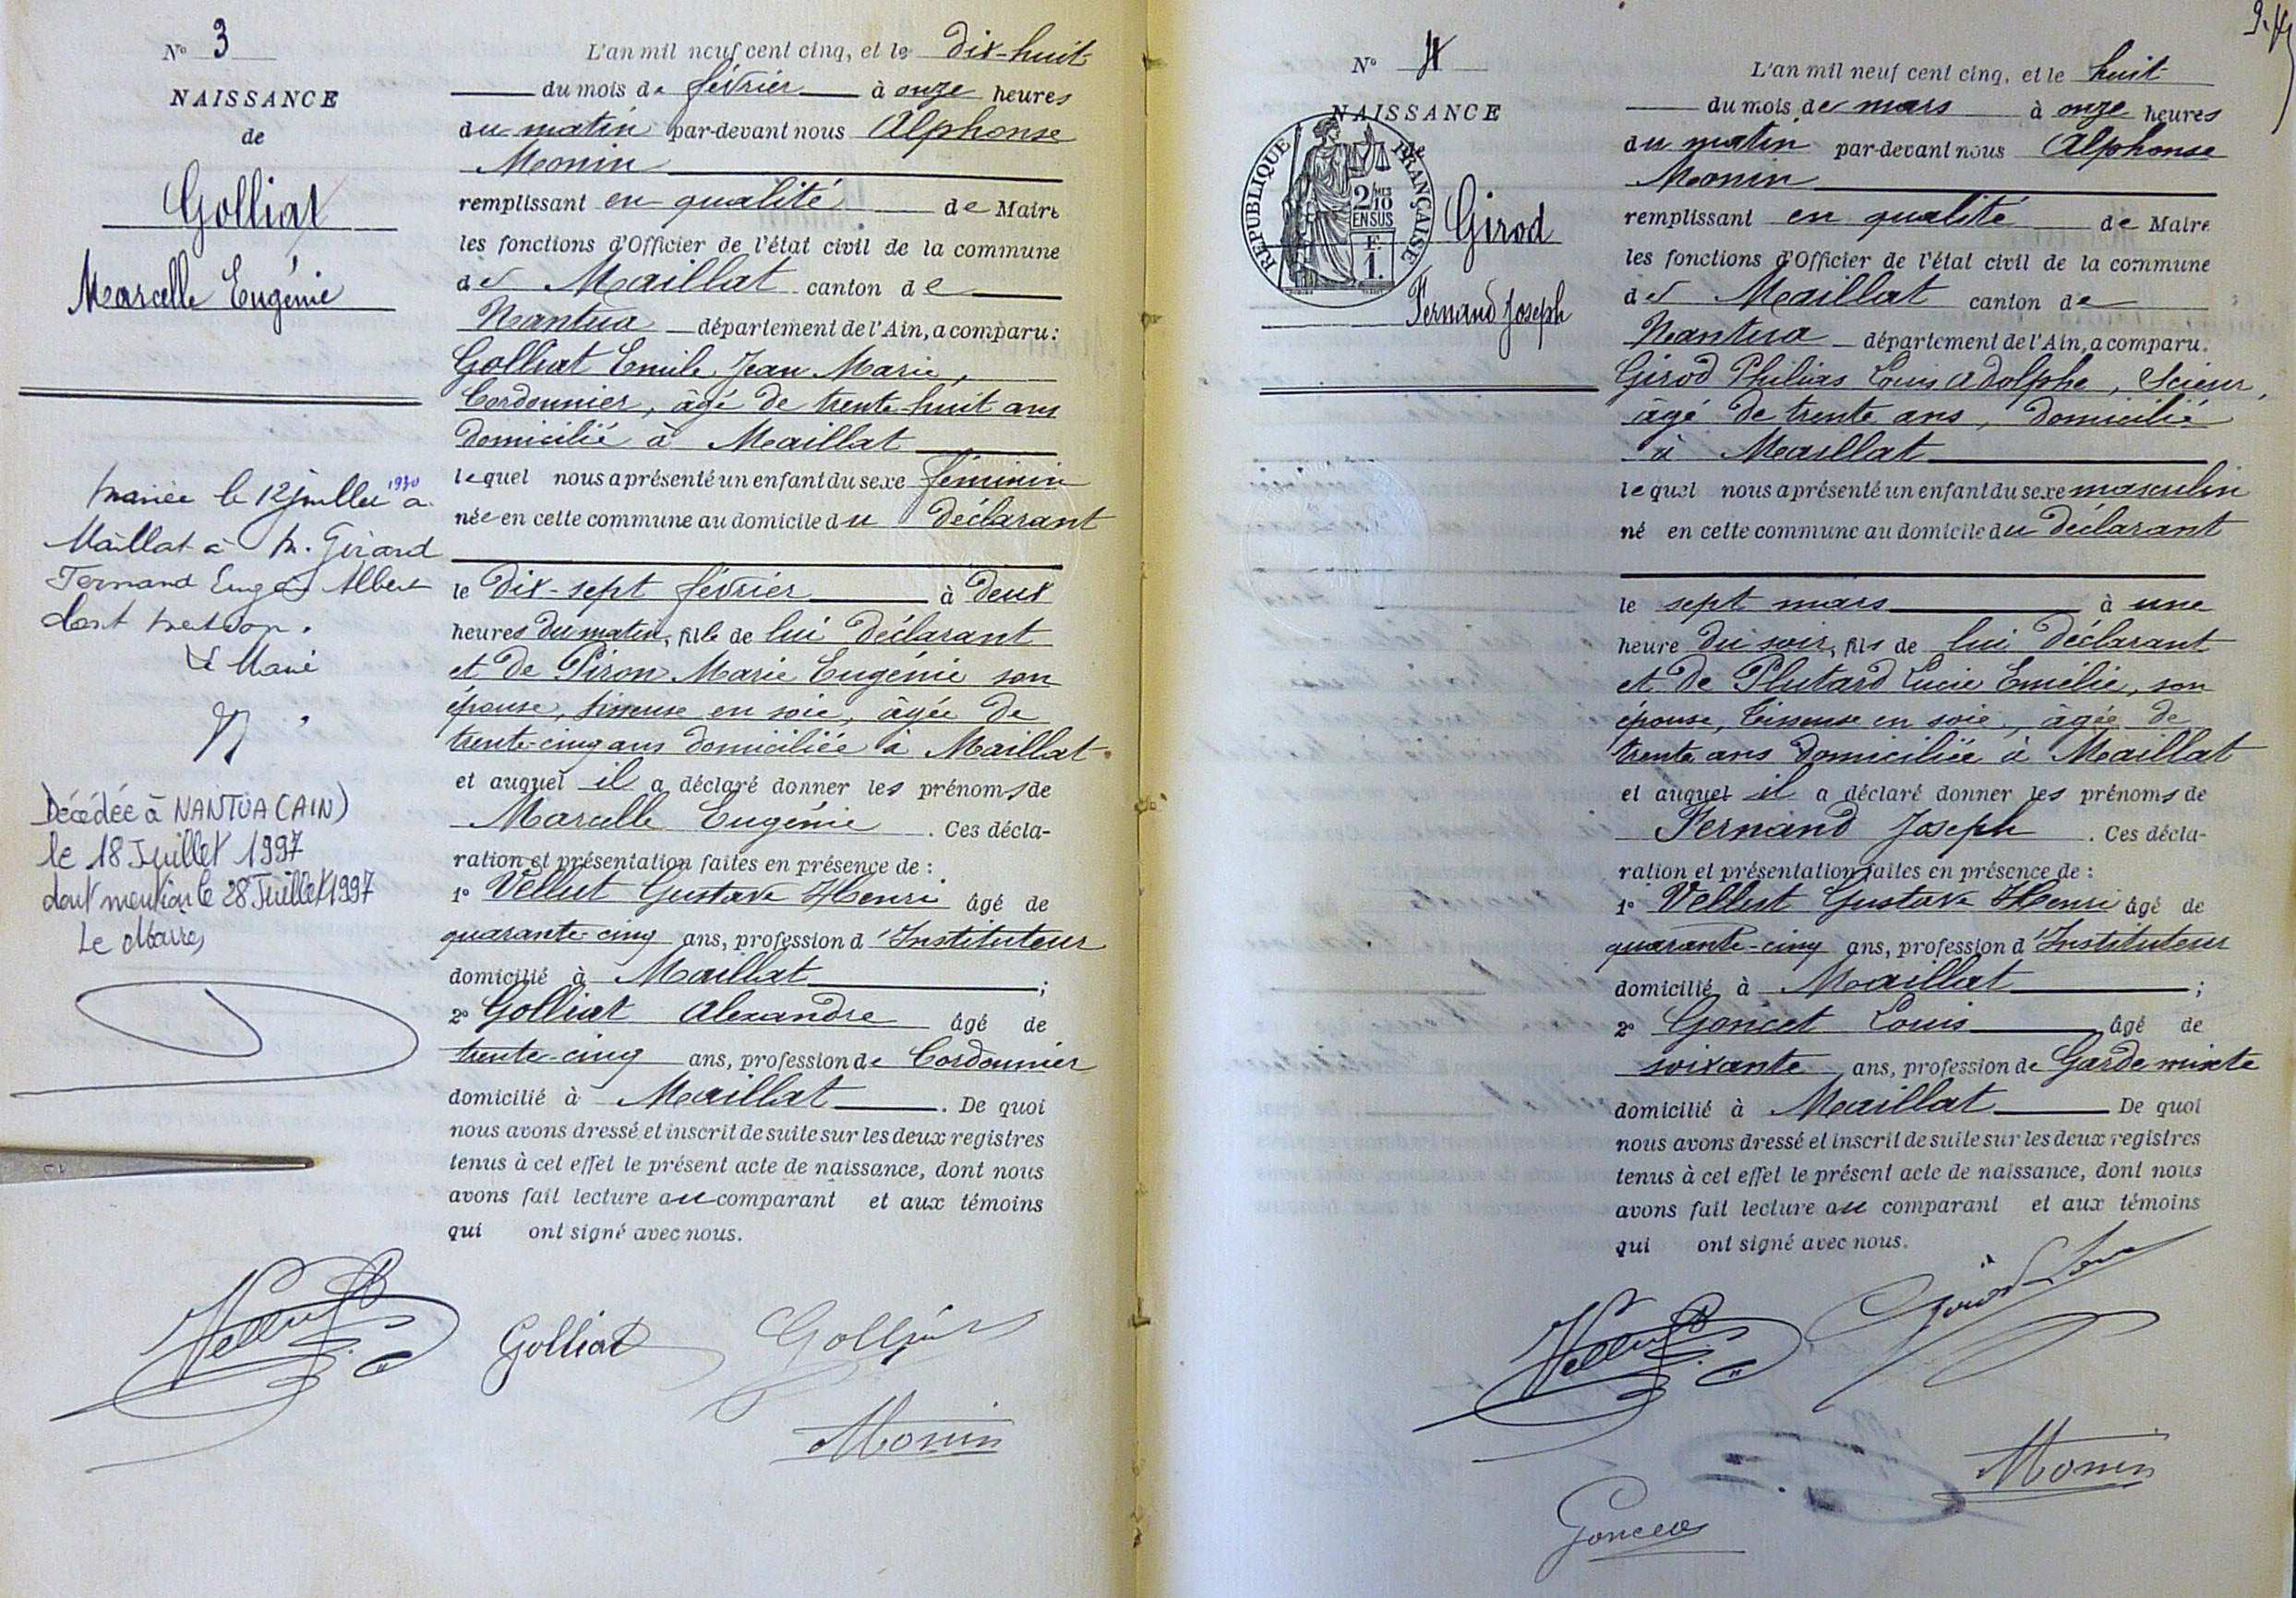 N° 3
NAISSANCE
de
Golliat
Marcelle Eugénie
mariée le 12 juillet 1930 à
Maillat à M. Girard
Fernand Eugène Albert
dont mention.
Le Maire
Décédée à NANTUA (AIN)
le 18 Juillet 1997
dont mention le 28 Juillet 1997
Le Maire,
L'an mil neuf cent cinq, et le dix-huit
du mois de février à onze heures
du matin par-devant nous Alphonse
Monin
remplissant en qualité de Maire
les fonctions d'Officier de l'état civil de la commune
de Maillat canton de
Nantua département de l'Ain, a comparu :
Golliat Emile Jean Marie,
Cordonnier, âgé de trente-huit ans
domicilié à Maillat
lequel nous a présenté un enfant du sexe féminin
née en cette commune au domicile du déclarant
le dix-sept février à deux
heures du matin, fille de lui déclarant
et de Piron Marie Eugénie son
épouse, tisseuse en soie, âgée de
trente-cinq ans domiciliée à Maillat
et auquel il a déclaré donner les prénoms de
Marcelle Eugénie. Ces décla-
ration et présentation faites en présence de :
1° Vellut Gustave Henri âgé de
quarante-cinq ans, profession d'Instituteur
domicilié à Maillat ;
2° Golliat Alexandre âgé de
trente-cinq ans, profession de Cordonnier
domicilié à Maillat. De quoi
nous avons dressé et inscrit de suite sur les deux registres
tenus à cet effet le présent acte de naissance, dont nous
avons fait lecture au comparant et aux témoins
qui ont signé avec nous.
Vellut Golliat Golliat
Monin
N° 4
NAISSANCE
de
REPUBLIQUE FRANÇAISE
2/10 MES
EN SUS
F.
1.
Girod
Fernand Joseph
L'an mil neuf cent cinq, et le huit
du mois de mars à onze heures
du matin par-devant nous Alphonse
Monin
remplissant en qualité de Maire
les fonctions d'Officier de l'état civil de la commune
de Maillat canton de
Nantua département de l'Ain, a comparu.
Girod Philias Louis Adolphe, Scieur,
âgé de trente ans, domicilié
à Maillat
lequel nous a présenté un enfant du sexe masculin
né en cette commune au domicile du déclarant
le sept mars à une
heure du soir, fils de lui déclarant
et de Plutard Lucie Emélie, son
épouse, tisseuse en soie, âgée de
trente ans domiciliée à Maillat
et auquel il a déclaré donner les prénoms de
Fernand Joseph. Ces décla-
ration et présentation faites en présence de :
1° Vellut Gustave Henri âgé de
quarante-cinq ans, profession d'Instituteur
domicilié à Maillat ;
2° Goncet Louis âgé de
soixante ans, profession de Garde mixte
domicilié à Maillat De quoi
nous avons dressé et inscrit de suite sur les deux registres
tenus à cet effet le présent acte de naissance, dont nous
avons fait lecture au comparant et aux témoins
qui ont signé avec nous.
Vellut Girod
Monin
Goncet